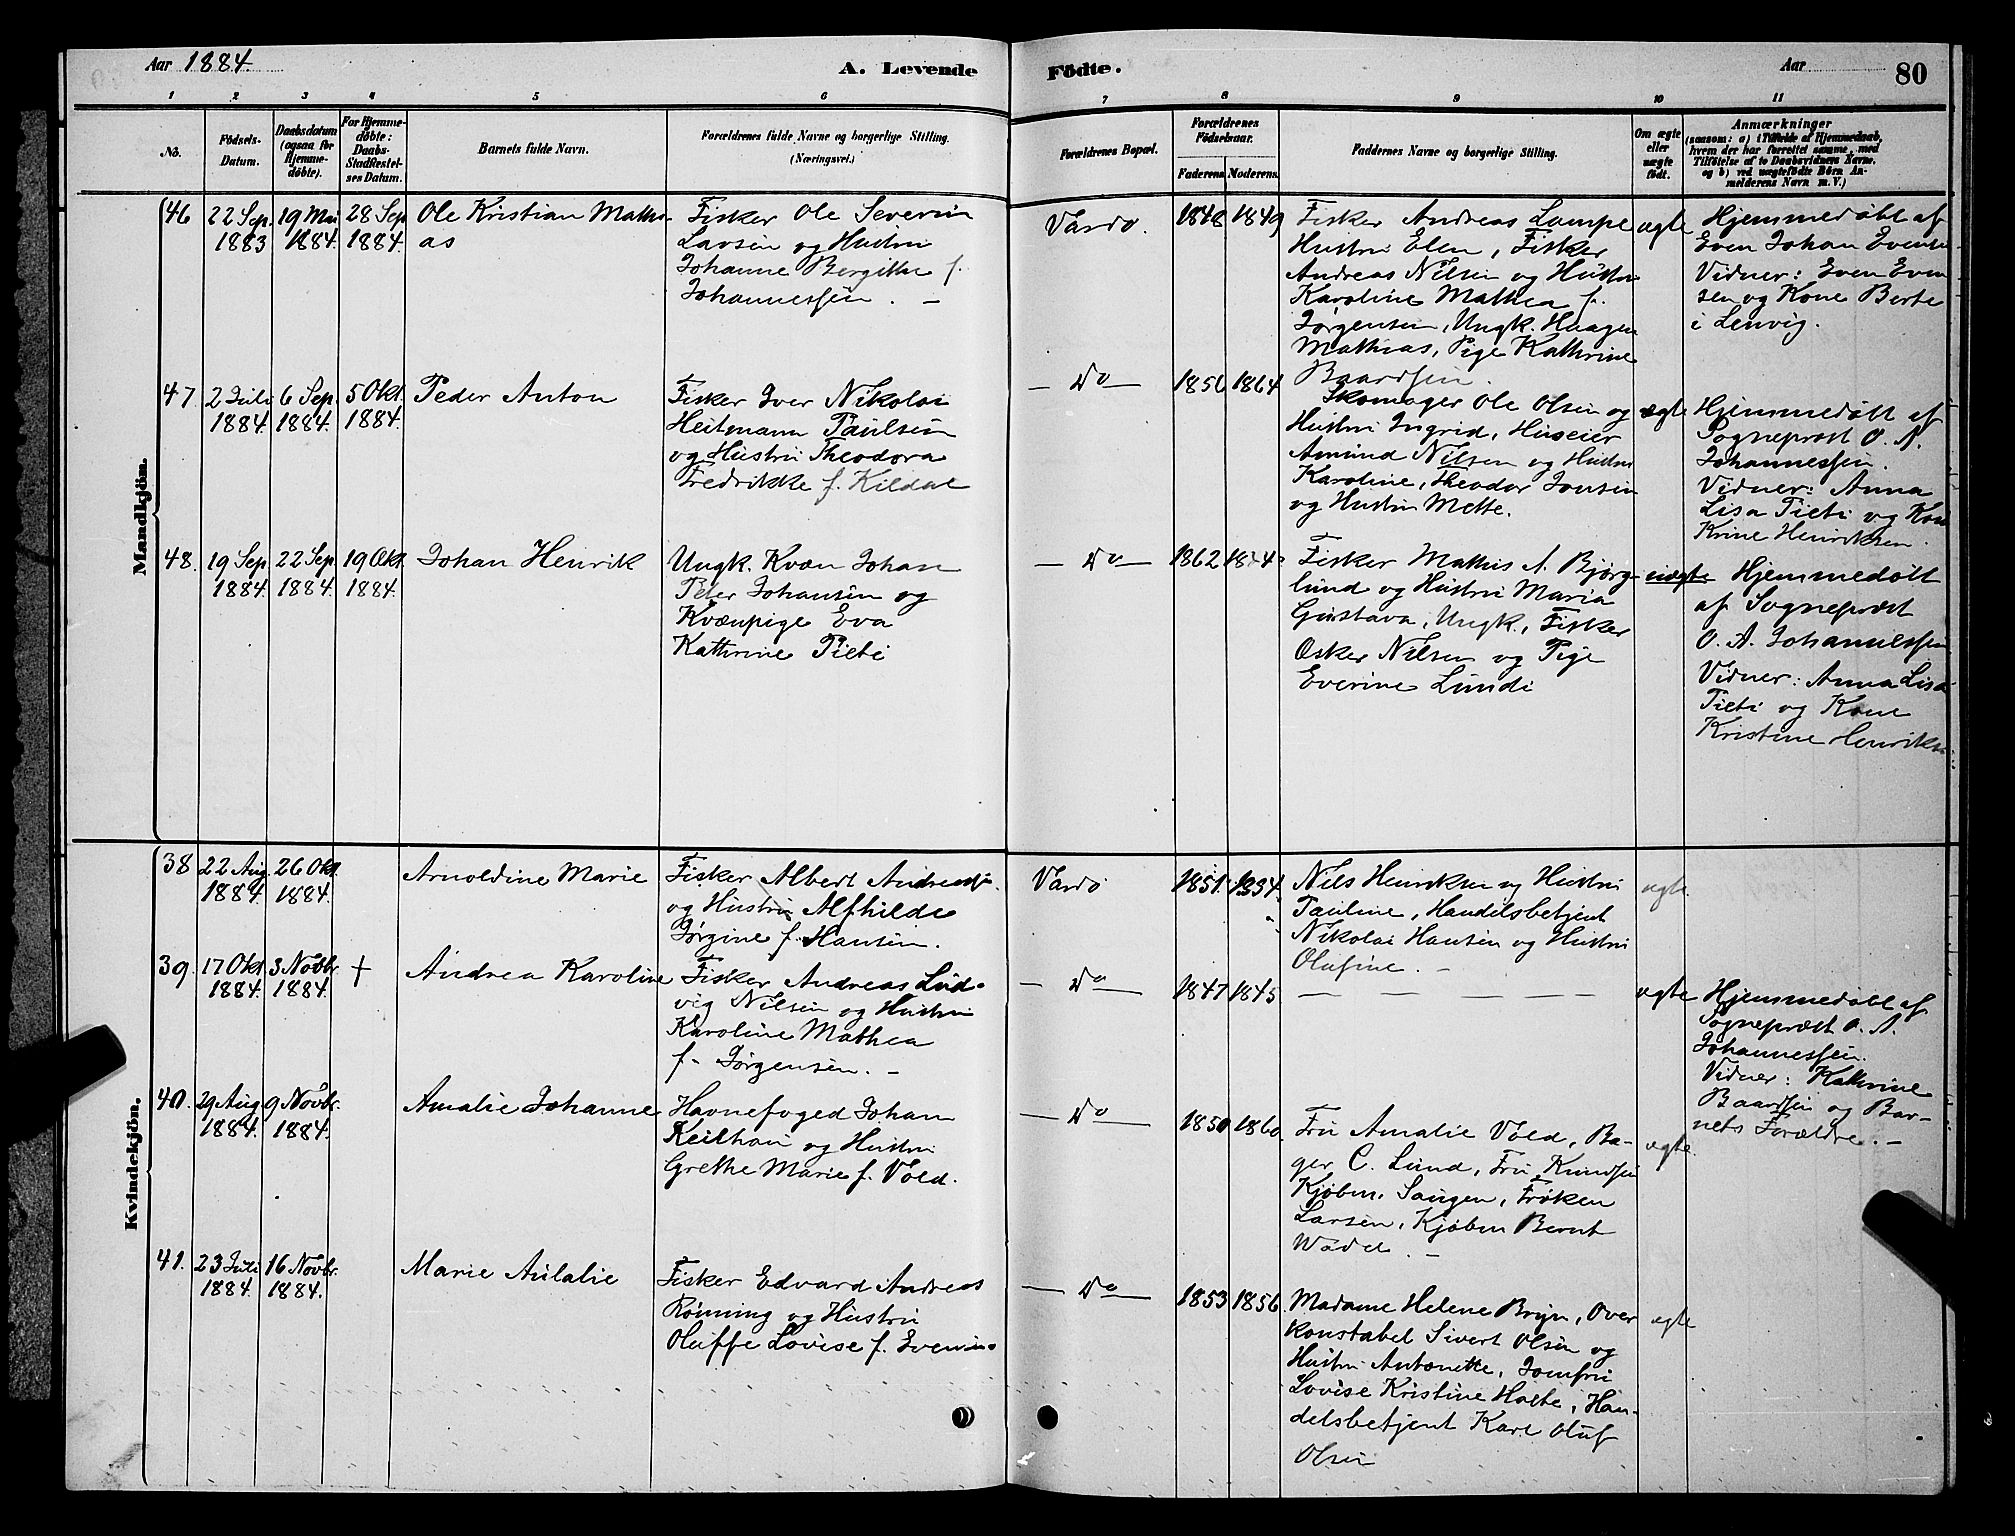 Aar 1884.
A. Levende Födte.
Aar
80
1 2 3 4 5 6 7 8 9 10 11
No. Födsels-Datum. Daabsdatum (ogsaa for Hjemme-döbte). For Hjemme-döbte: Daabs-Stadfæstel-ses Datum. Barnets fulde Navn. Forældrenes fulde Navne og borgerlige Stilling. (Næringsvei.) Forældrenes Bopæl. Forældrenes Födselsaar. Faderens Moderens Faddernes Navne og borgerlige Stilling. Om ægte eller uægte födt. Anmærkninger
(saasom: a) i Tilfælde af Hjemmedaab,
hvem der har forrettet samme, med
Tilföielse af to Daabsvidners Navne.
og b) ved uægtefödte Börn An-
melderens Navn m. V.)
Mandkjön.
46 22 Sep. 1883 19 Mai 1884. 28 Sep 1884.
Ole Kristian Mathi-
as
Fisker Ole Severin
Larsen og Hustru
Johanne Bergitte f.
Johannessen. –
Vardö. 1848 1849
Fisker Andreas Lampe
Hustru Elen, Fisker
Andreas Nilsen og Hustru
Karoline Mathea f.
Jørgensen, Ungk. Haagen
Mathias, Pige Kathrine
Baardsen.
ægte
Hjemmedøbt af
Even Johan Evense
Vidner: Even Even
sen og Kone Berte
i Lenvig.
47. 2 Juli 1884. 6 Sep. 1884. 5 Okt. 1884.
Peder Anton
Fisker Iver Nikolai
Heitmann Paulsen
og Hustru Theodora
Fredrikke f. Kildal
— Do — 1856 1864
Skomager Ole Olsen og
Hustru Ingrid, Huseier
Amund Nilsen og Hustru
Karoline, Theodor Jonsen
og Hustru Mette.
ægte
Hjemmedøbt af
Sogneprest O. A.
Johannessen.
Vidner: Anna
Lisa Pieti og Kone
Krine Henriksen.
48. 19 Sep 1884. 22 Sep 1884. 19 Okt. 1884.
Johan Henrik
Ungk. Kvæn Johan
Peter Johansen og
Kvænpige Eva
Kathrine Pieti
— Do — 1862
Fisker Mathis A. Bjørg-
lund og Hustru Maria
Gustava, Ungk., Fisker
Osker Nilsen og Pige
Everine Lundi
uægte
Hjemmedøbt
af Sogneprest
O. A. Johannessen
Vidner: Anna Lisa
Pieti og Kone
Kristine Henriksen
Kvindekjön.
38 22 Aug. 1884. 26 Okt. 1884.
Arnoldine Marie
Fisker Albert Andreassen
og Hustru Alfhilde
Jørgine f. Hansen.
Vardö 1851
Nils Henriksen og Hustru
Pauline, Handelsbetjent
Nikolai Hansen og Hustru
Olufine. –
ægte
39. 17 Okt 1884. 3 Novbr. 1884. +
Andrea Karoline
Fisker Andreas Lud-
vig Nilsen og Hustru
Karoline Mathea
f. Jørgensen. –
— Do — 1847 1845
— — — — —
ægte
Hjemmedøbt af
Sogneprest O. A.
Johannessen.
Vidner: Kathrine
Baardsen og Bar-
nets Forældre. –
40. 29 Aug. 1884. 9 Novbr. 1884.
Amalie Johanne
Havnefoged Johan
Keilhau og Hustru
Grethe Marie f. Vold.
— Do — 1850 1860.
Fru Amalie Vold, Ba-
ger C. Lund, Fru Knudsen
Kjøbm. Saugen, Frøken
Larsen, Kjøbm Bernt
Wadel. –
ægte.
41. 23 Juli 1884. 16 Novbr. 1884.
Marie Aulalie
Fisker Edvard Andreas
Rønning og Hustru
Oluffe Lovise f. Evensen
— Do — 1853 1856.
Madame Helene Bryn, Over
konstabel Sivert Olsen og
Hustru Antonette, Jomfru
Lovise Kristine Holte, Han-
delsbetjent Karl Oluf
Olsen
ægte